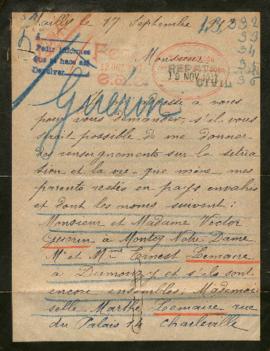 Mailly le 17 Septembre 191
Pedir informes
que se hace así
Devolver
Monsieur
REPAT
19 NOV 191
CIVIL
Guerrin
à vous
pour vous demander, s'il vous
serait possible de me donner
des renseignements sur la situa
tion et la vie que mène mes
parents restés en pays envahis
et dont les noms suivent:
Monsieur et Madame Victor
Guerrin à Montcy Notre Dame
Mr et Mme Ernest Lemaire
à Damouzy et s'ils sont
encore ensembles; Mademoi
selle Marthe Lemaire rue
du Palais 14 Charleville